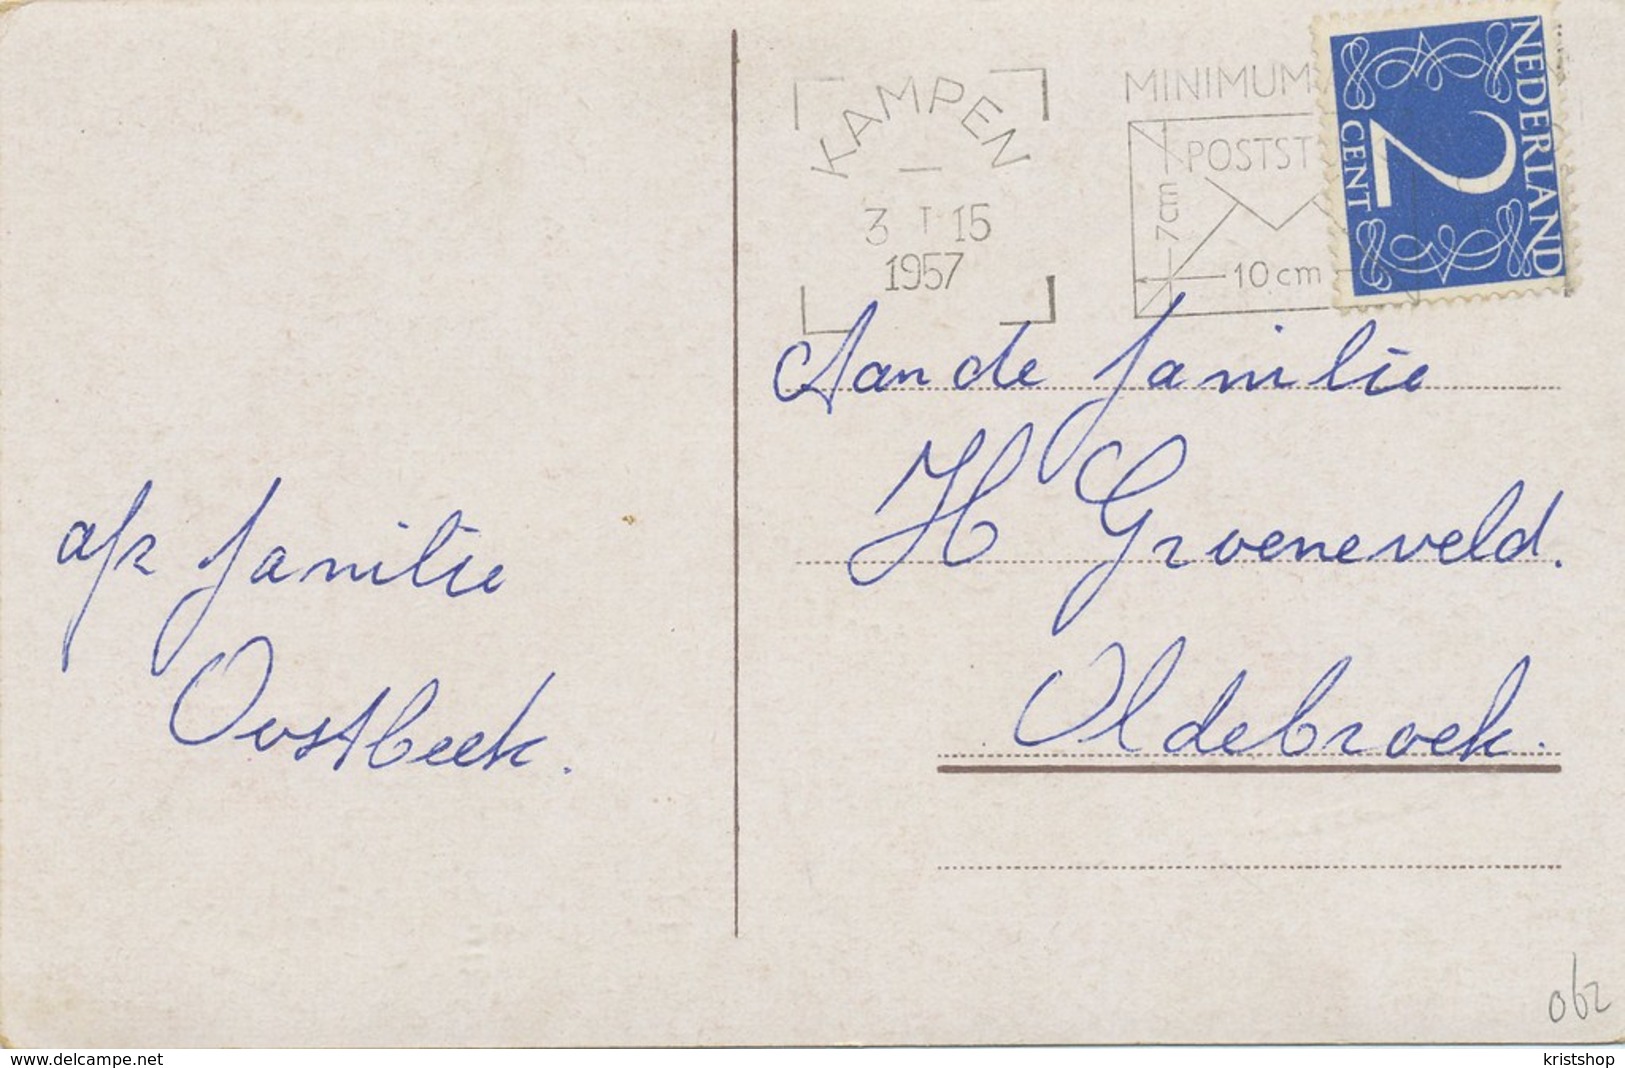 KAMPEN
3 I 15
1957
MINIMUM
POSTST
7 cm
10 cm
NEDERLAND
2
CENT
Aan de familie
H Groeneveld.
Oldebroek.
afz familie
Oostbeek.
062
www.delcampe.net
kristshop